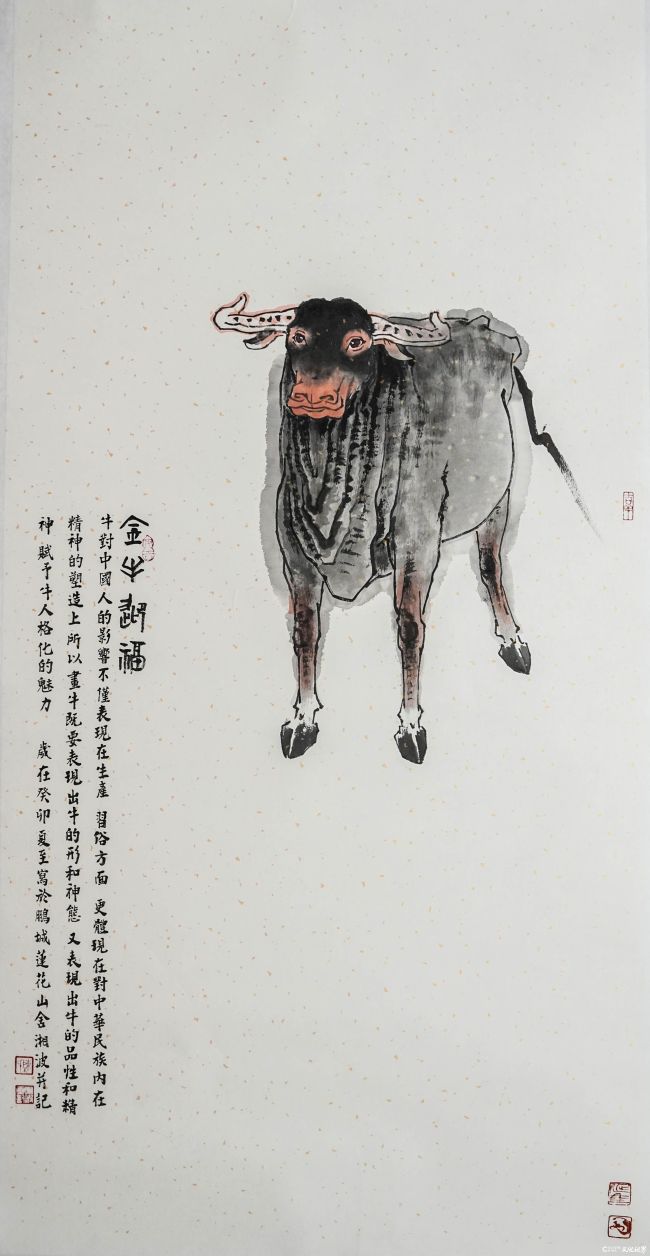 金牛起福
牛對中國人的影響不僅表現在生產 習俗方面 更體現在對中華民族內在
精神的塑造上所以畫牛既要表現出牛的形和神態 又表現出牛的品性和精
神 賦予牛人格化的魅力 歲在癸卯夏至寫於鵬城蓮花山舍湘波并記